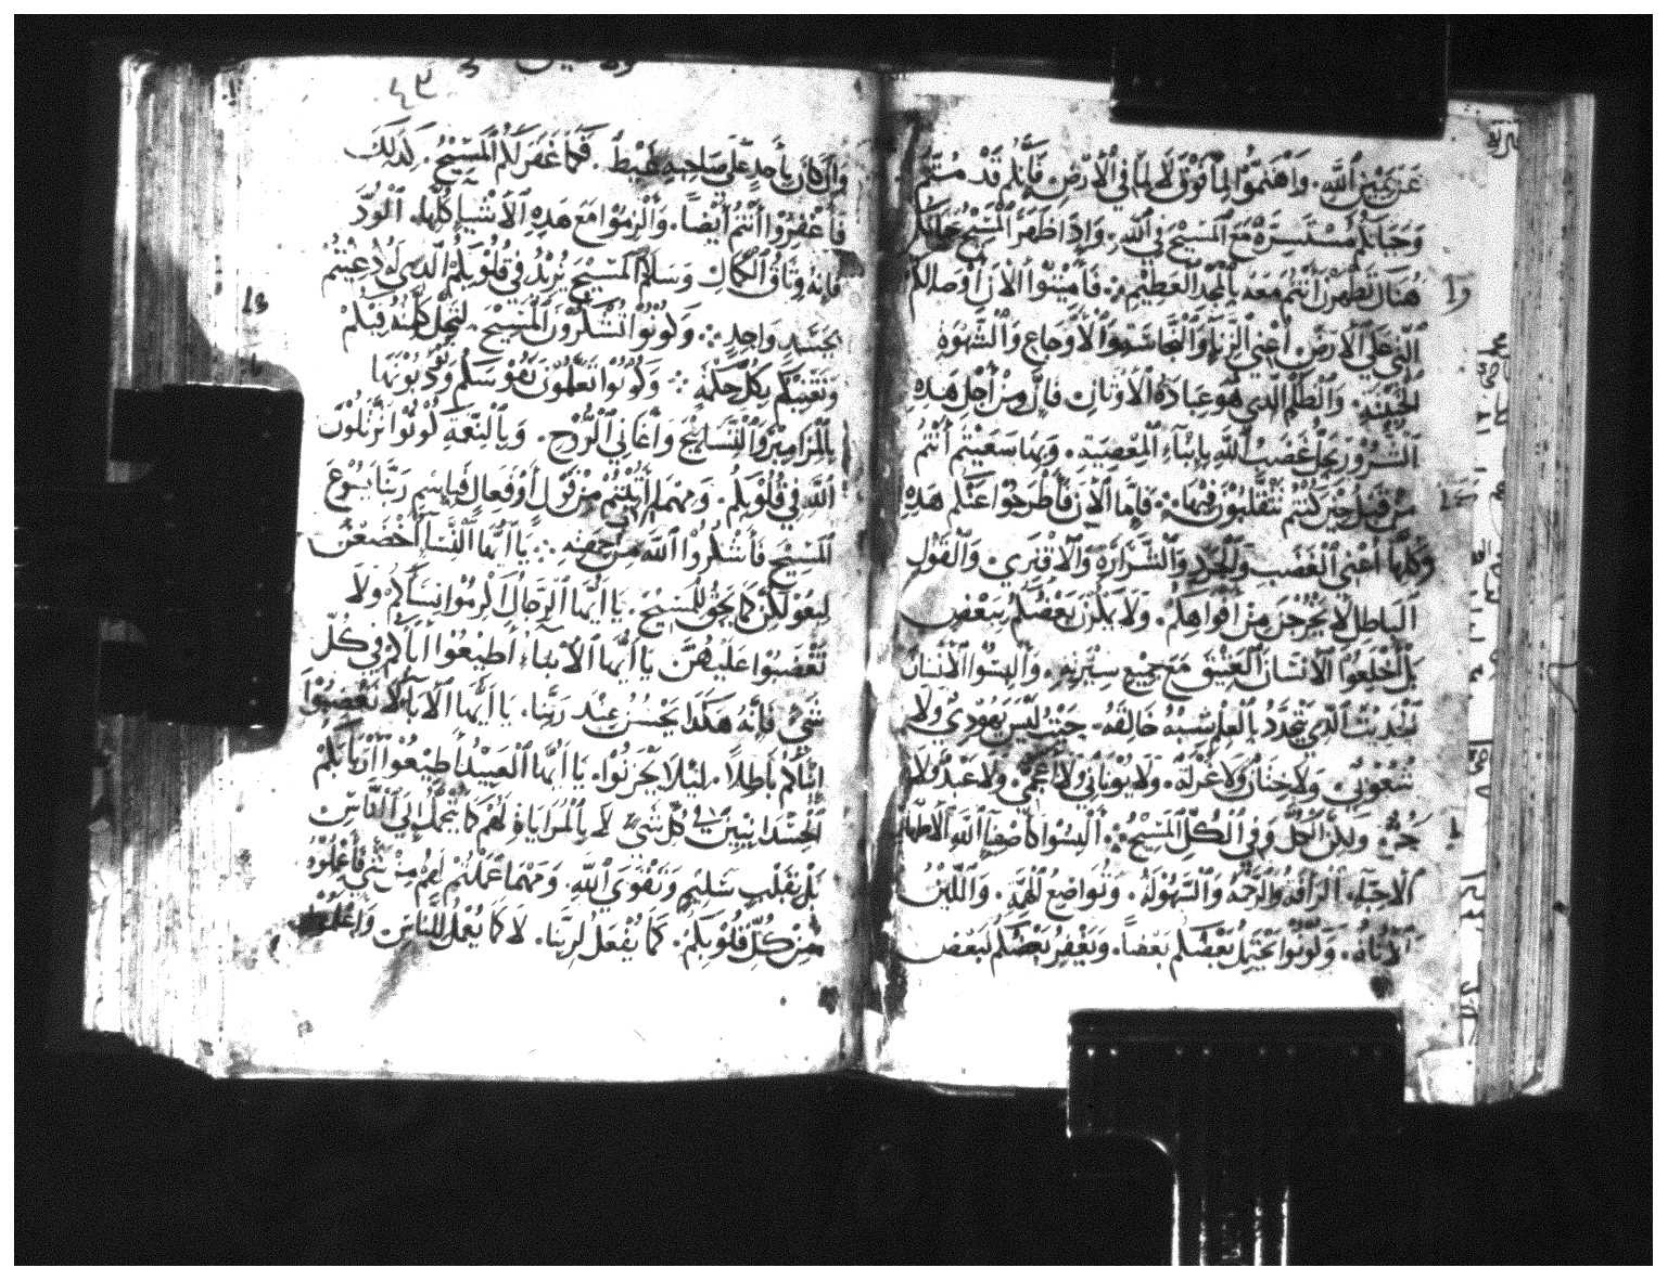 عَنْ يَمِيْنِ اللهِ. وَاهْتَمُّوا لِمَا فَوْقَ لَا لِمَا فِي الْأَرْضِ. فَإِنَّكُم قَدْ مُتُّم
وَحَيَاتُكُم مُسْتَتِرَةٌ مَعَ الْمَسِيْحِ فِي اللهِ. وَإِذَا ظَهَرَ الْمَسِيْحُ حَيَاتُكُم
هُنَاكَ تَظْهَرُونَ أَنْتُم مَعَهُ بِالْمَجْدِ الْعَظِيْمِ ۞ فَأَمِيْتُوا الْآنَ أَوْصَالَكُم
الَّتِي عَلَى الْأَرْضِ أَعْنِي الزِّنَا وَالنَّجَاسَةِ وَالْأَوْجَاعِ وَالشَّهْوَةِ
الْخَبِيْثَةِ. وَالظُّلْمِ الَّذِي هُوَ عِبَادَةُ الْأَوْثَانِ. فَإِنَّ مِنْ أَجْلِ هَذِهِ
الشُّرُوْرِ يَحِلُّ غَضَبُ اللهِ بِأَبْنَاءِ الْمَعْصِيَةِ. وَبِهَا سَعَيْتُم أَنْتُم
مِنْ قَبْلُ حِيْنَ كُنْتُم تَتَقَلَّبُوْنَ فِيْهَا ۞ فَأَمَّا الْآنَ فَاطْرَحُوا عَنْكُم هَذِهِ
كُلَّهَا أَعْنِي الْغَضَبَ وَالْحَرَدَ وَالشَّرَارَةَ وَالْافْتِرَى. وَالْقَوْلَ
الْبَاطِلَ لَا يَخْرُجْنَ مِنْ أَفْوَاهِكُم. وَلَا يَكْذِبْ بَعْضُكُم بِبَعْضٍ
بَلْ اخْلَعُوا الْإِنْسَانَ الْعَتِيْقَ مَعَ جَمِيْعِ سِيْرَتِهِ. وَالْبَسُوا الْإِنْسَانَ
الْحَدِيْثَ الَّذِي يَتَجَدَّدُ بِالْعِلْمِ بِشِبْهِ خَالِقِهِ. حَيْثُ لَيْسَ يَهُوْدِيٌّ وَلَا
شُعُوْبِيٌّ. وَلَا خِتَانٌ وَلَا غُرْلَةٌ. وَلَا يُوْنَانِي وَلَا أَعْجَمِيّ. وَلَا عَبْدٌ وَلَا
حُرٌّ. وَلَكِنَّ الْكُلَّ وَفِي الْكُلِّ الْمَسِيْحُ ۞ الْبَسُوا كَأَصْفِيَآءِ اللهِ الْأَطْهَارِ
الْأَحِبَّاءِ. الرَّأْفَةَ وَالرَّحْمَةَ وَالسُّهُوْلَةَ. وَتَوَاضُعَ الْهِمَّةِ. وَاللِّيْنَ
وَالْأَنَاةَ. وَكُوْنُوا يَحْتَمِلُ بَعْضُكُم بَعْضاً. وَيَغْفِرُ بَعْضُكُم لِبَعْضٍ
٤٣
وَإِنْ كَانَ بِأَحَدٍ عَلَى صَاحِبِهِ غَبْطٌ. فَكَمَا غَفَرَ لَكُمُ الْمَسِيْحُ. كَذَلِكَ
فَاغْفِرُوْا أَنْتُم أَيْضاً. وَالْزَمُوْا مَعَ هَذِهِ الْأَشْيَاءِ كُلِّهَا. الْوُدَّ
فَإِنَّهُ وِثَاقُ الْكَمَالِ وَسَلَامُ الْمَسِيْحِ يُرِيْدُ فِي قُلُوْبِكُمُ الَّذِي لَهُ دُعِيْتُمْ
بِجَسَدٍ وَاحِدٍ ۞ وَكُوْنُوْا تَشْكُرُوْنَ الْمَسِيْحَ. لِتَحِلَّ كَلِمَتُهُ فِيْكُمْ
بِكُلِّ حِكْمَةٍ ۞ وَكُوْنُوْا تُعَلِّمُوْنَ نُفُوْسَكُم وَتُؤَدِّبُوْنَهَا
بِالْمَزَامِيْرِ وَالتَّسَابِيْحِ وَأَغَانِي الرُّوْحِ. وَبِالنِّعْمَةِ كُوْنُوْا تُرَتِّلُوْنَ
اللهَ فِي قُلُوْبِكُم. وَمَهْمَا أَتَيْتُم مِنْ قَوْلٍ أَوْ فَعَالٍ فَبِاسْمِ رَبِّنَا يَسُوْعَ
الْمَسِيْحِ فَاشْكُرُوْا اللهَ مِنْ جِهَتِهِ ۞ يَا أَيُّهَا النِّسَاءُ اخْضَعْنَ
لِبُعُوْلَتِكُنَّ كَمَا يَحِقُّ لِلْمَسِيْحِ. يَا أَيُّهَا الرِّجَالُ الْزَمُوْا نِسَاءَكُم وَلَا
تَغْضَبُوْا عَلَيْهِنَّ يَا أَيُّهَا الْأَبْنَاءُ أَطِيْعُوْا آبَاءَكُم فِي كُلِّ
شَيْءٍ فَإِنَّهُ هَكَذَا يَحْسُنُ عِنْدَ رَبِّنَا. يَا أَيُّهَا الْآبَاءُ لَا تُغْضِبُوْا
أَبْنَاءَكُمْ بَاطِلًا. لِيْلَا يَحْزَنُوْا. يَا أَيُّهَا الْعَبِيْدُ أَطِيْعُوْا أَرْبَابَكُمُ
الْجَسَدَانِيِّيْنَ فِي كُلِّ شَيْءٍ لَا بِالْمَرَايَاةِ لَهُم كَمَا يُتَجَمَّلُ إِلَى النَّاسِ
بَلْ بِقَلْبٍ سَلِيْمٍ وَتَقْوَى اللهِ. وَمَهْمَا عَمِلْتُمْ لَهُمْ مِنْ شَيْءٍ فَاعْمَلُوْهُ
مِنْ كُلِّ قُلُوْبِكُمْ. كَمَا يُفْعَلُ لِرَبِّنَا. لَا كَمَا يُعْمَلُ لِلنَّاسِ وَاعْلَمُوْا